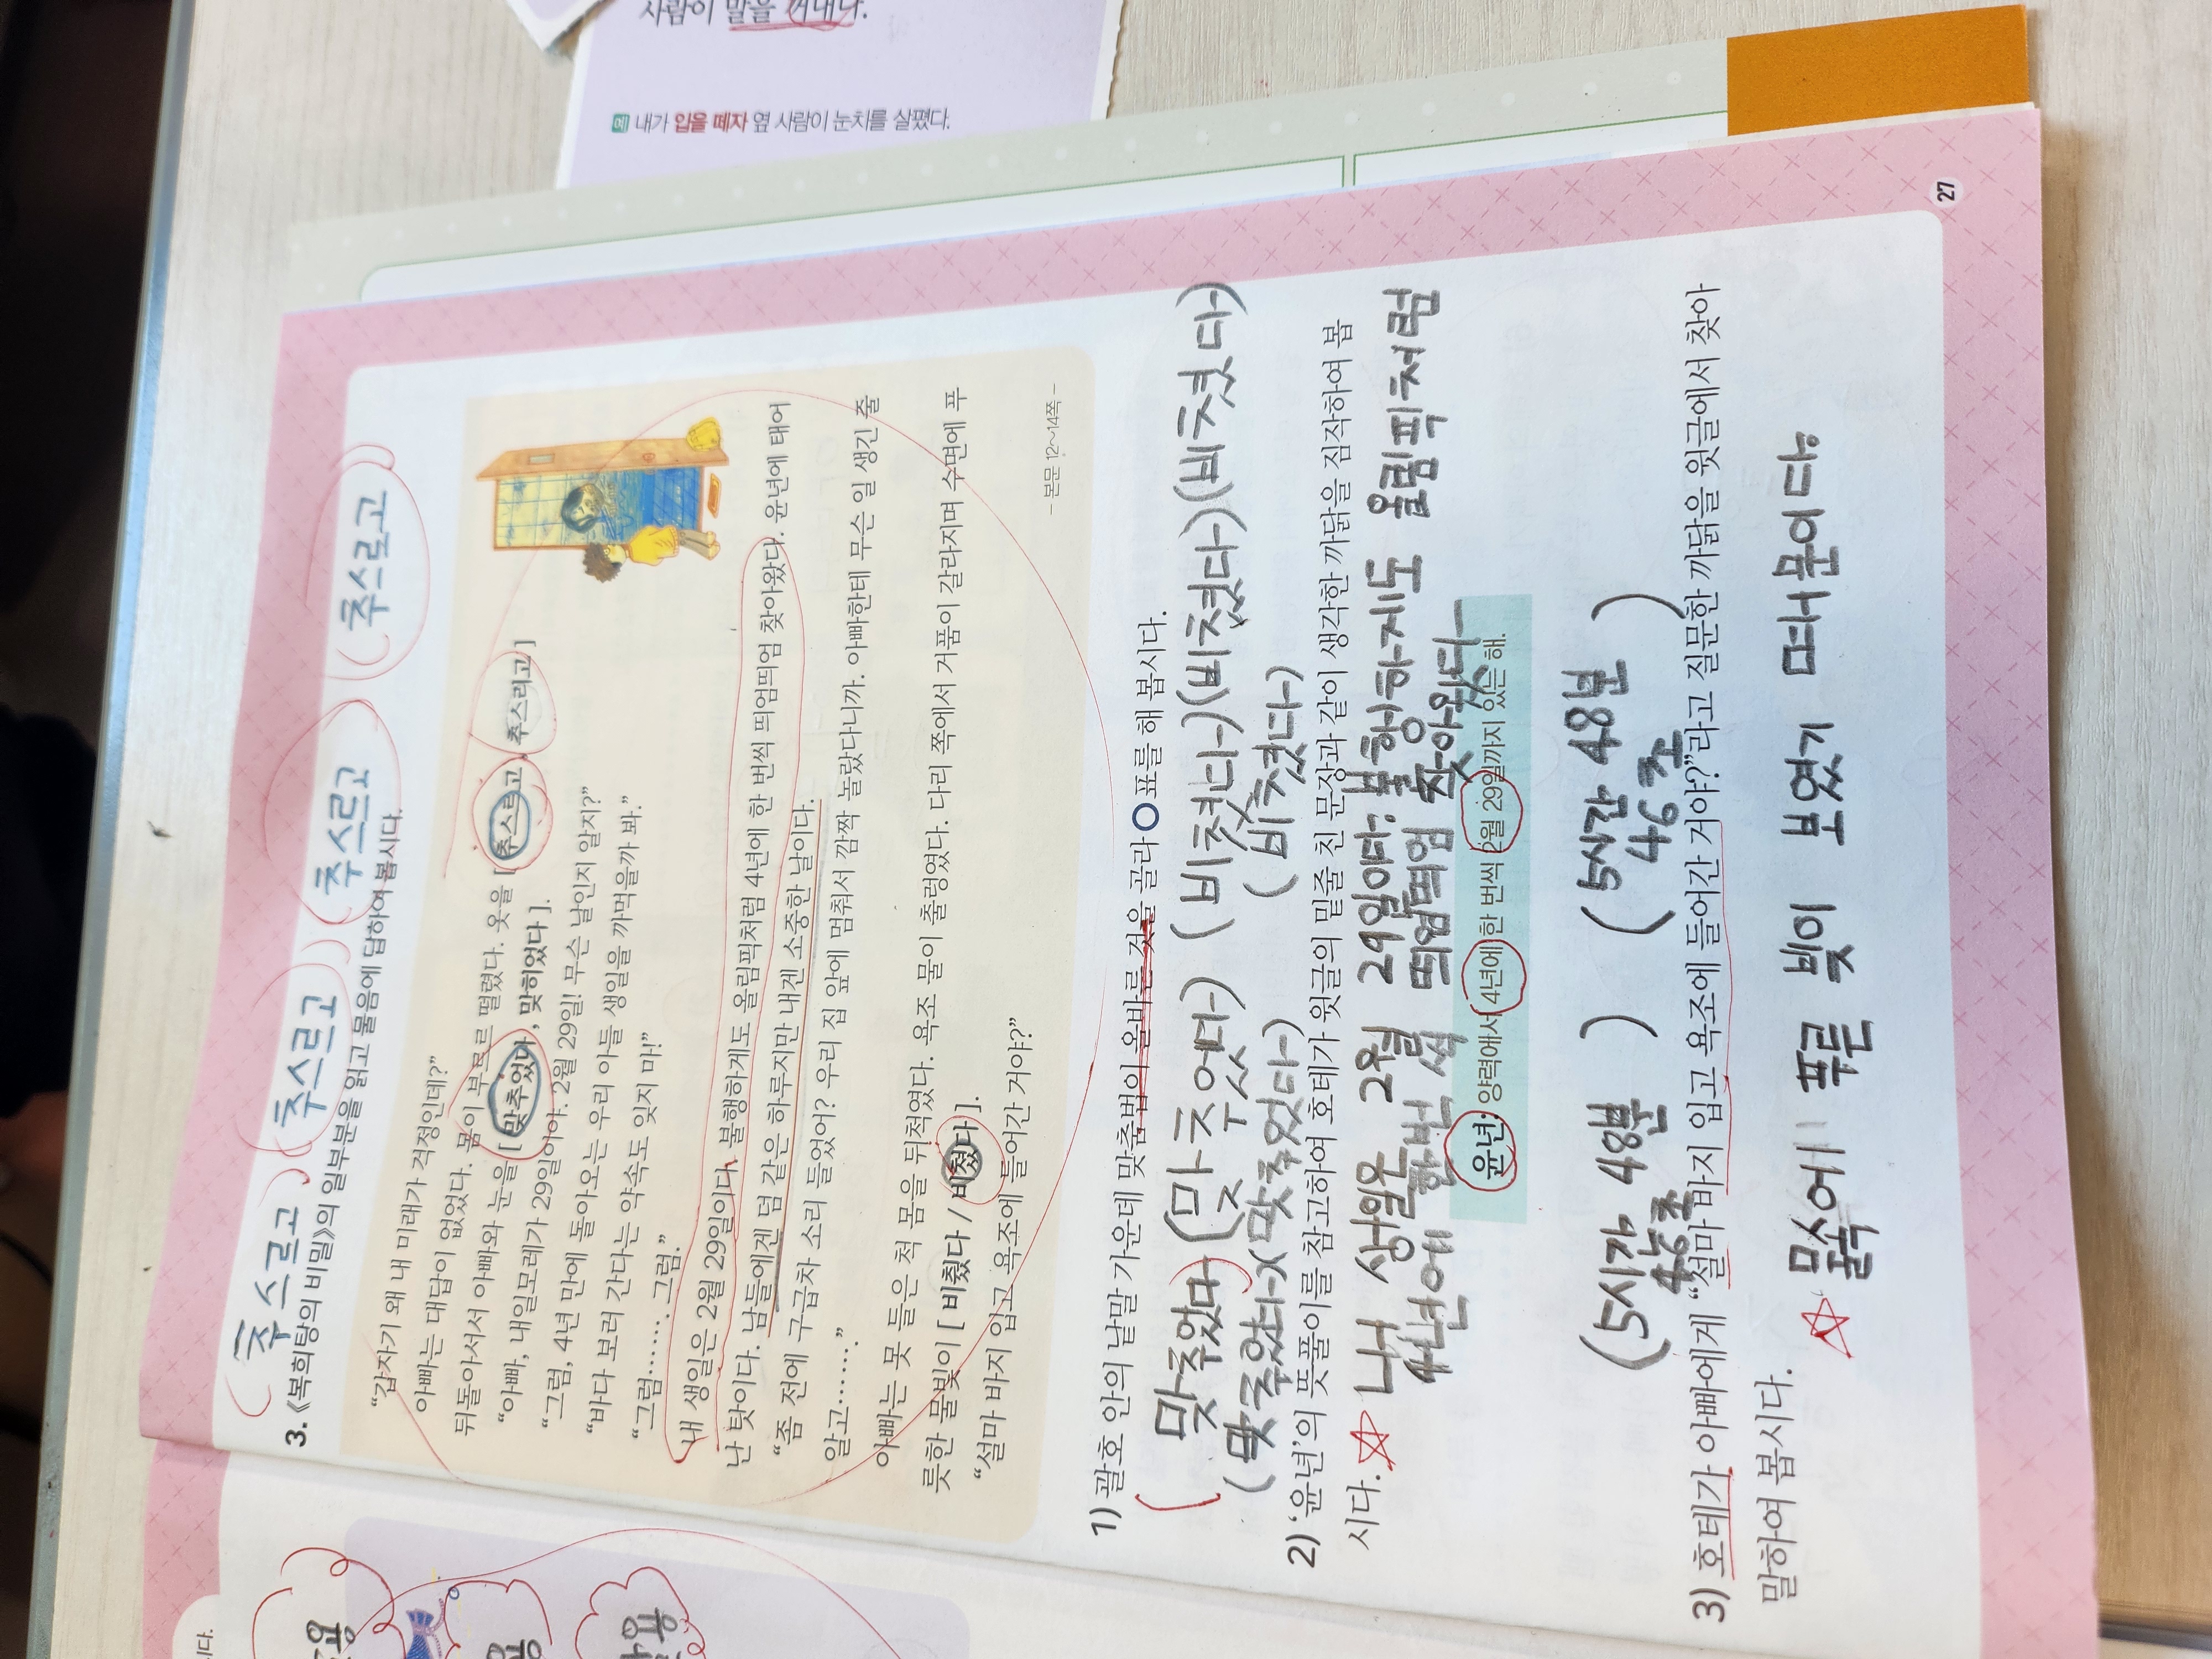 사람이 말을 꺼내다.
예 내가 입을 떼자 옆 사람이 눈치를 살폈다.
(추스르고)(추스르고)(추스르고)(추스르고)
3. 《복희탕의 비밀》의 일부분을 읽고 물음에 답하여 봅시다.
“갑자기 왜 내 미래가 걱정인데?”
아빠는 대답이 없었다. 몸이 부르르 떨렸다. 옷을 [ 추스르고 / 추스리고 ]
뒤돌아서서 아빠와 눈을 [ 맞추었다 , 맞히었다 ].
“아빠, 내일모레가 29일이야. 2월 29일! 무슨 날인지 알지?”
“그럼, 4년 만에 돌아오는 우리 아들 생일을 까먹을까 봐.”
“바다 보러 간다는 약속도 잊지 마!”
“그럼……. 그럼.”
내 생일은 2월 29일이다. 불행하게도 올림픽처럼 4년에 한 번씩 띄엄띄엄 찾아왔다. 윤년에 태어
난 탓이다. 남들에겐 덤 같은 하루지만 내겐 소중한 날이다.
“좀 전에 구급차 소리 들었어? 우리 집 앞에 멈춰서 깜짝 놀랐다니까. 아빠한테 무슨 일 생긴 줄
알고…….”
아빠는 못 들은 척 몸을 뒤척였다. 욕조 물이 출렁였다. 다리 쪽에서 거품이 갈라지며 수면에 푸
릇한 물빛이 [ 비췄다 / 비쳤다 ].
“설마 바지 입고 욕조에 들어간 거야?”
- 본문 12~14쪽 -
1) 괄호 안의 낱말 가운데 맞춤법이 올바른 것을 골라 ○표를 해 봅시다.
(맞추었다)(맞추었다) (비쳤다)(비쳤다)(비쳤다)
(맞추었다)(맞추었다) (비쳤다)
2) ‘윤년’의 뜻풀이를 참고하여 호테가 윗글의 밑줄 친 문장과 같이 생각한 까닭을 짐작하여 봅
시다.
내 생일은 2월 29일이다. 불행하게도 올림픽처럼
4년에 한번 씩 띄엄띄엄 찾아왔다
윤년: 양력에서 4년에 한 번씩 2월 29일까지 있는 해.
(5시간 48분 46초) (5시간 48분 46초)
3) 호테가 아빠에게 “설마 바지 입고 욕조에 들어간 거야?”라고 질문한 까닭을 윗글에서 찾아
말하여 봅시다.
물속에 푸른 빛이 보였기 때문이다.
27
시다.